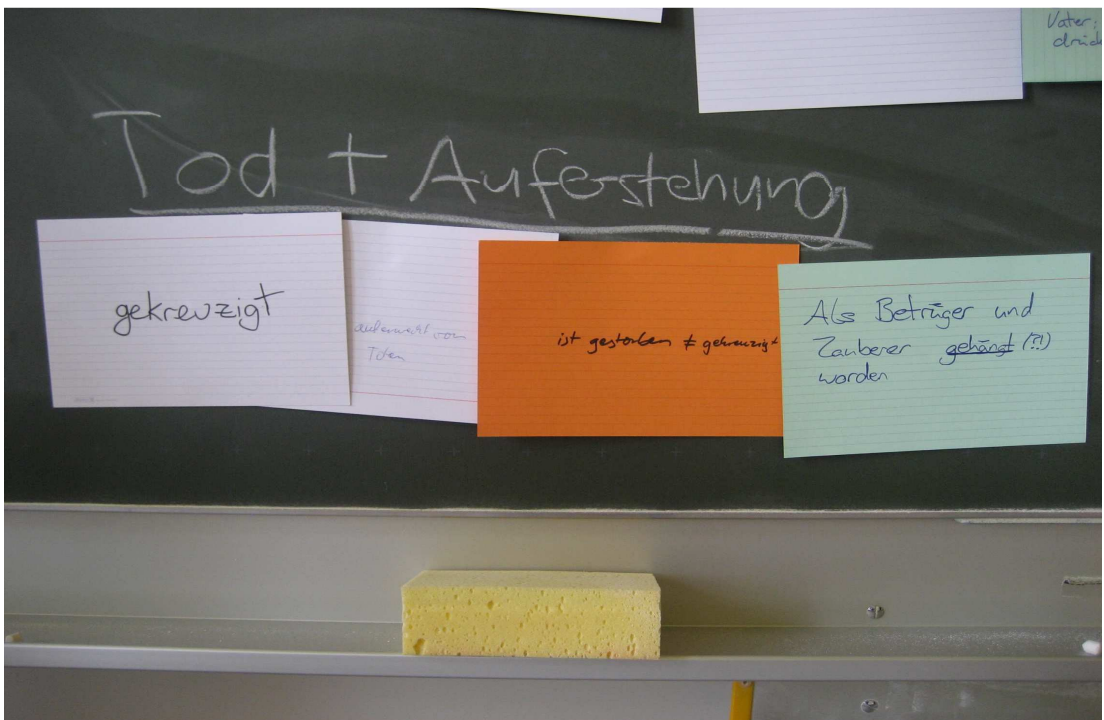 Vater:
Tod + Auferstehung
gekreuzigt
auferweckt von
Toten
ist gestorben ≠ gekreuzigt
Als Betrüger und
Zauberer gehängt (?!)
worden